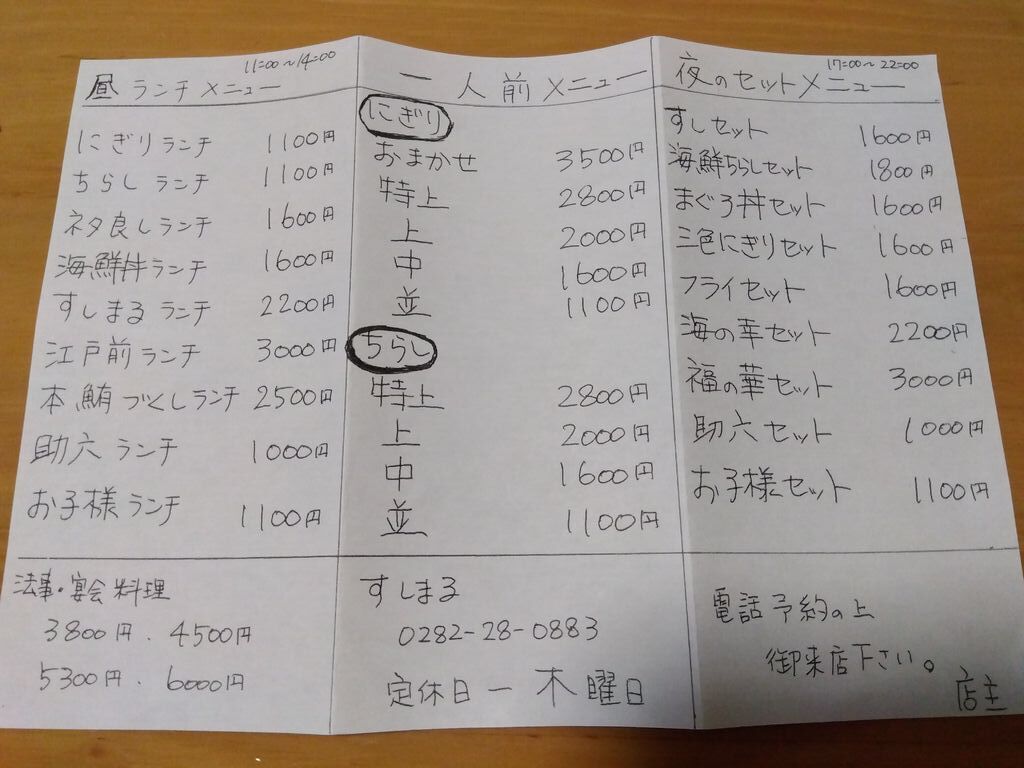 昼 ランチメニュー 11:00～14:00
にぎりランチ 1100円
ちらしランチ 1100円
ネタ良しランチ 1600円
海鮮丼ランチ 1600円
すしまるランチ 2200円
江戸前ランチ 3000円
本鮪づくしランチ 2500円
助六ランチ 1000円
お子様ランチ 1100円
法事・宴会料理
3800円．4500円
5300円．6000円
一人前メニュー
にぎり
おまかせ 3500円
特上 2800円
上 2000円
中 1600円
並 1100円
ちらし
特上 2800円
上 2000円
中 1600円
並 1100円
すしまる
0282-28-0883
定休日ー木曜日
夜のセットメニュー 17:00～22:00
すしセット 1600円
海鮮ちらしセット 1800円
まぐろ丼セット 1600円
三色にぎりセット 1600円
フライセット 1600円
海の幸セット 2200円
福の華セット 3000円
助六セット 1000円
お子様セット 1100円
電話予約の上
御来店下さい。
店主